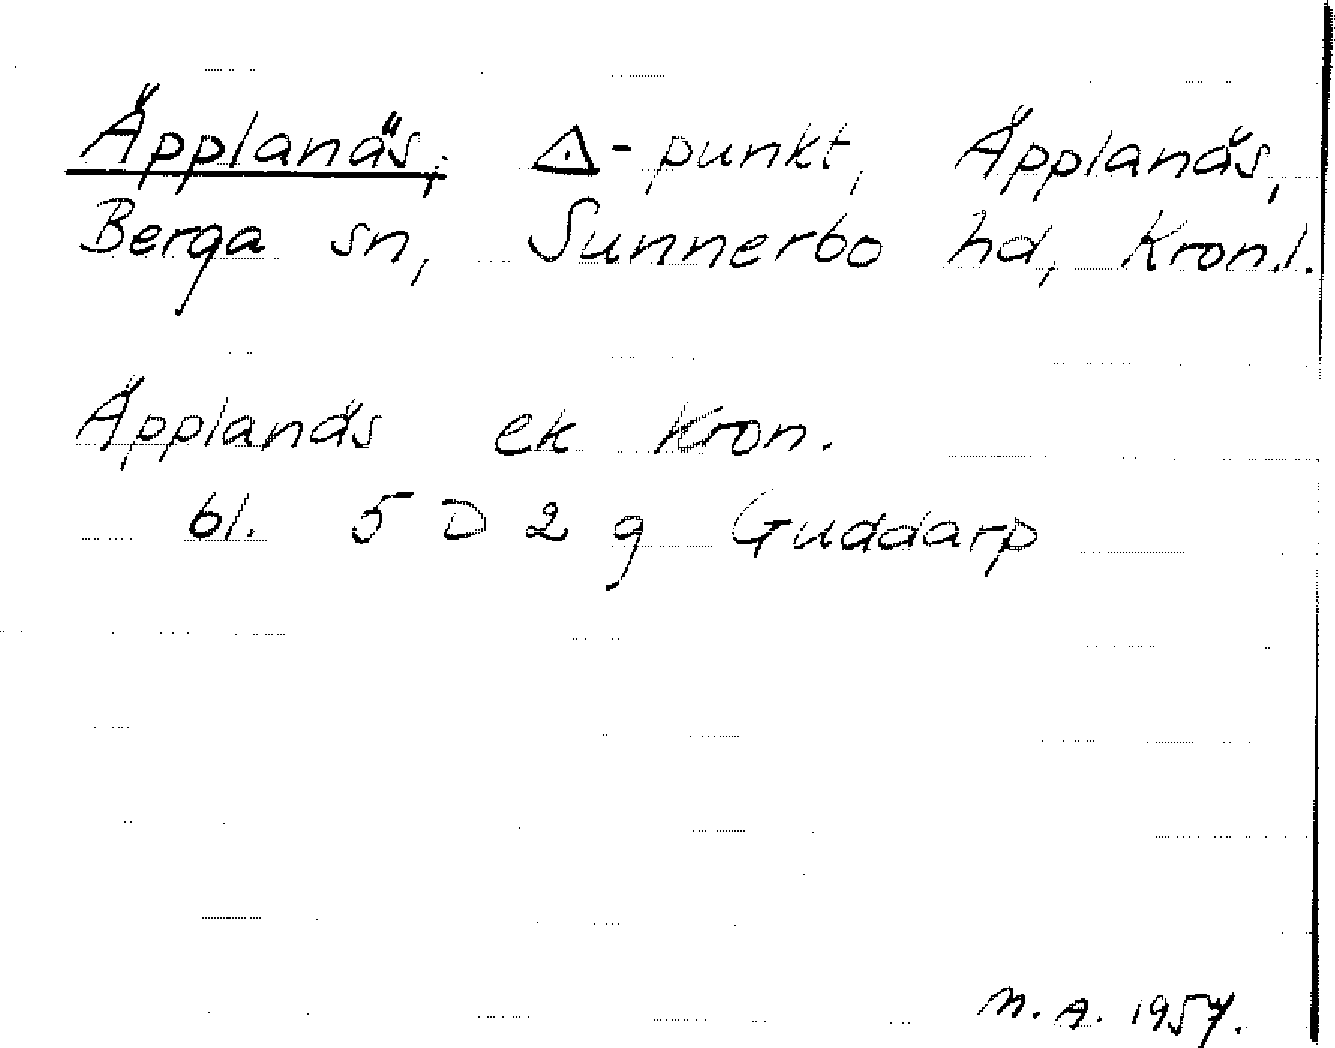 Äpplanäs, △-punkt, Äpplanäs,
Berga sn, Sunnerbo hd, Kron.l.
Äpplanäs ek Kron.
bl. 5 D 2 g Guddarp
N. A. 1957.